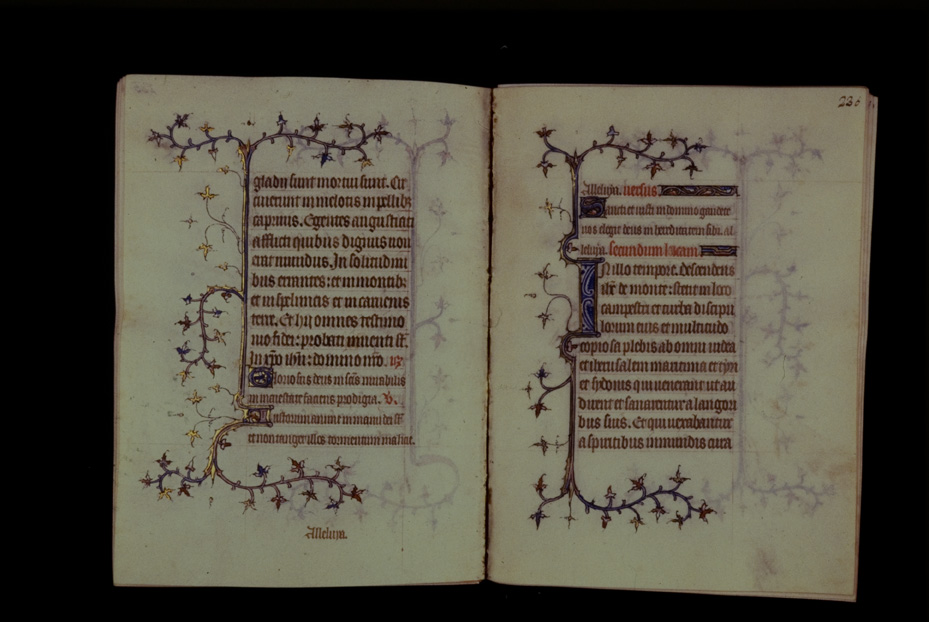 gladij sunt mortui sunt. Cir
cuierunt in melotis in pellib;
caprinis. Egentes angustiati
afflicti quibus dignus non
erat mundus. In solitudini
bus errantes: et in montib;
et in speluncis et in cauernis
terre. Et hij omnes testimo
nio fidei: probati inuenti s̄t̄.
In xp̄o ih̄u: domino nr̄o.
Gloriosus deus in sc̄is mirabilis
in maiestate faciens prodigia. V̄.
Iustorum anime in manu dei s̄t̄
et non tanget illos tormentum malicie.
Alleluya.
225
Alleluya. uersus
Sancti et iusti in domino gaudete
uos elegit deus in hereditatem sibi. al
leluya. secundum lucam
In illo tempore. descendens
ih̄c de monte: stetit in loco
campestri et turba discipu
lorum eius et multitudo
copiosa plebis ab omni iudea
et iherusalem maritima et tyri
et sydonis qui uenerant ut au
dirent et sanarentur a langori
bus suis. Et qui uexabantur
a spiritibus inmundis cura